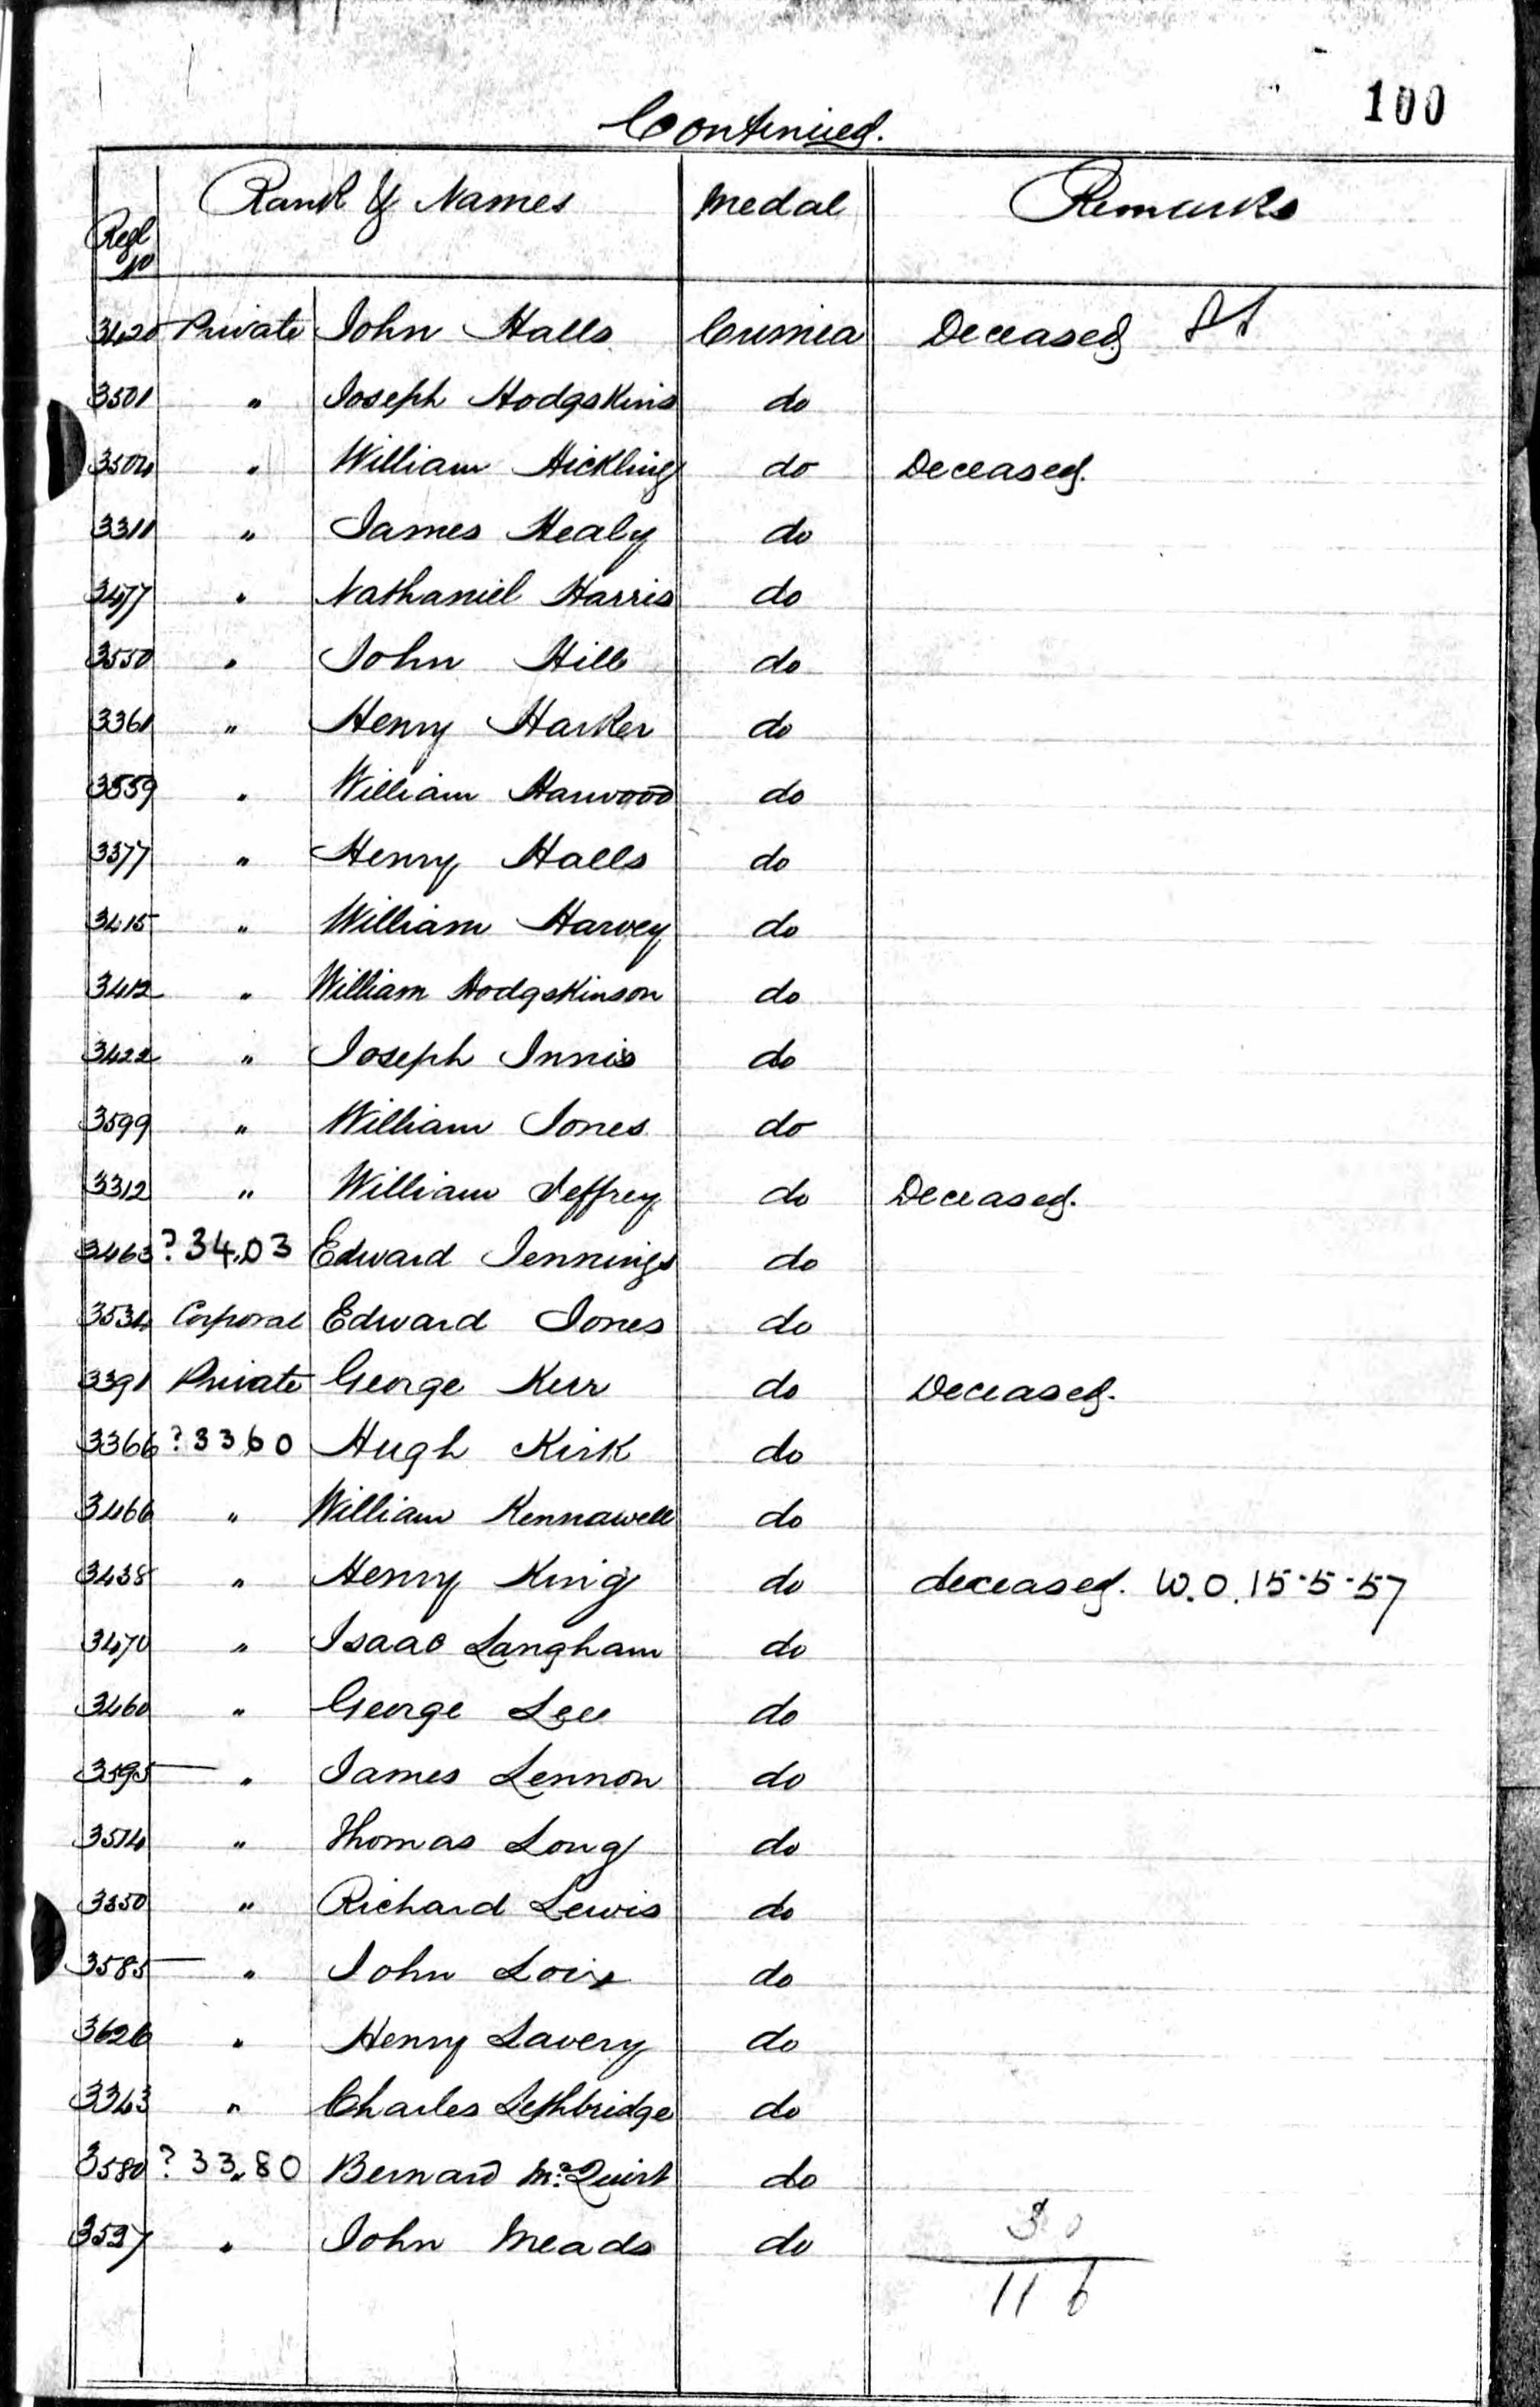 100
Continued.
Regl No Rank & Names Medal Remarks
3420 Private John Halls Crimea Deceased
3501 " Joseph Hodgskins do
3504 " William Hickling do Deceased.
3311 " James Healy do
3477 " Nathaniel Harris do
3550 " John Hill do
3361 " Henry Harker do
3559 " William Harwood do
3377 " Henry Halls do
3415 " William Harvey do
3412 " William Hodgskinson do
3422 " Joseph Innis do
3599 " William Jones do
3312 " William Jeffrey do Deceased.
3463 ? 3403 Edward Jennings do
3534 Corporal Edward Jones do
3391 Private George Kerr do Deceased.
3366 ? 3360 Hugh Kirk do
3466 " William Kennawell do
3438 " Henry King do deceased. W.O. 15-5-57
3470 " Isaac Langham do
3460 " George Lee do
3595 " James Lennon do
3514 " Thomas Long do
3350 " Richard Lewis do
3585 " John do
3626 " Henry Lavery do
3343 " Charles Lethbridge do
3580 ? 33"80 Bernard McQuirt do
3597 " John Meads do
30
116